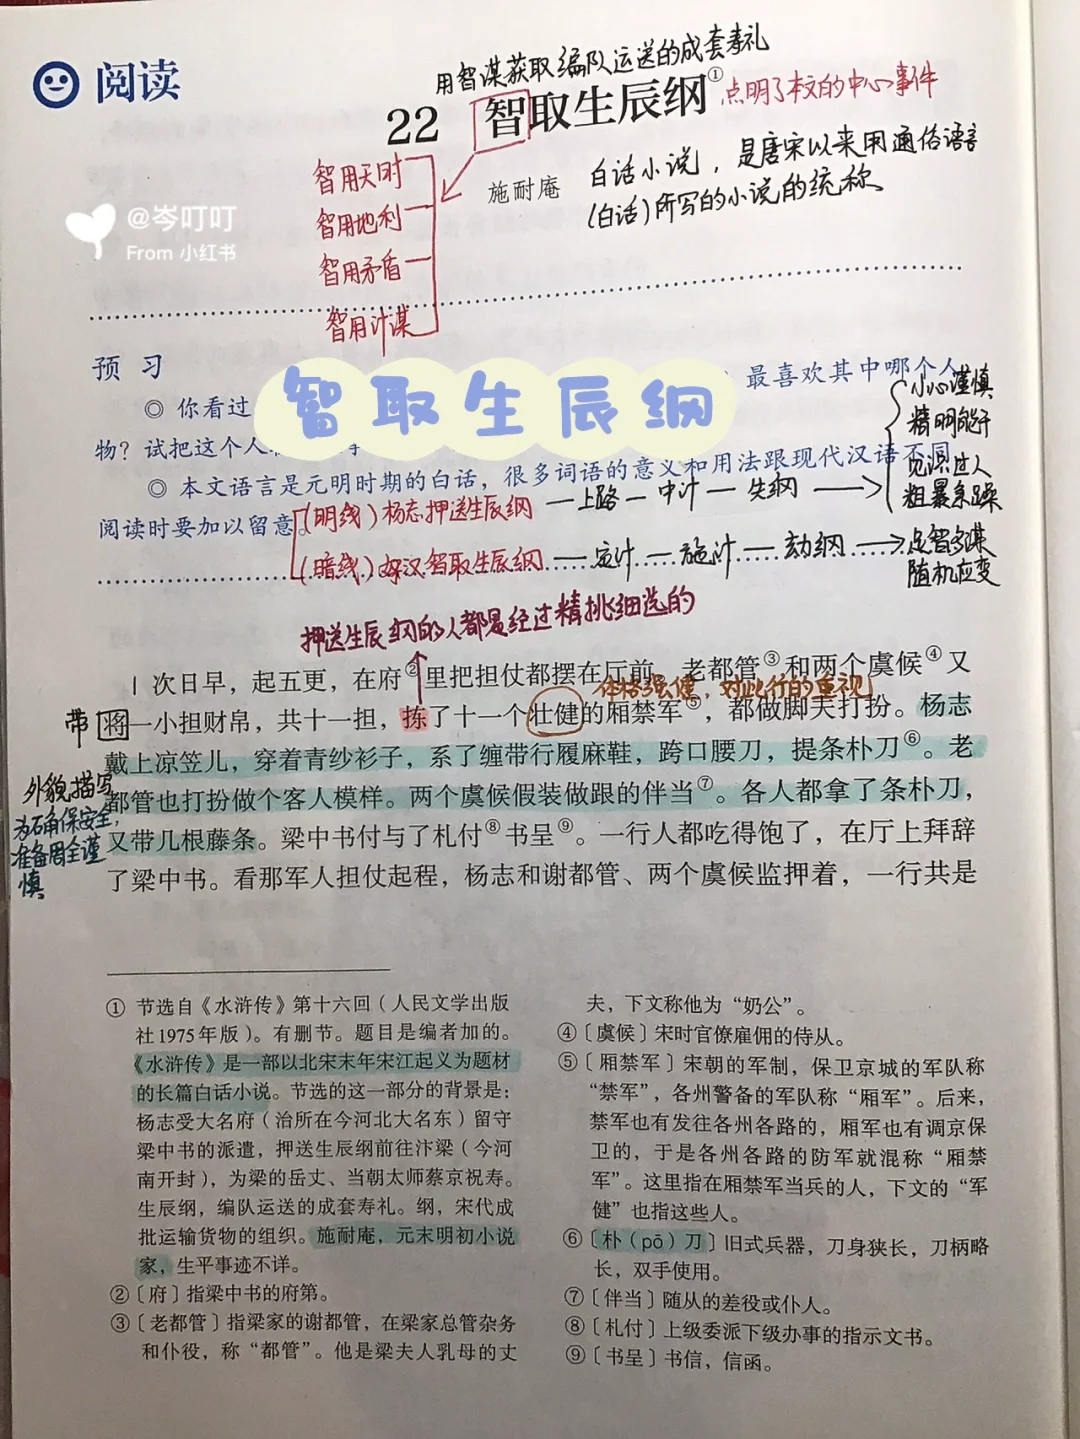 阅读
用智谋获取编队运送的成套寿礼
22 智取生辰纲①
点明了本文的中心事件
智用天时
智用地利
智用矛盾
智用计谋
施耐庵
白话小说，是唐宋以来用通俗语言
(白话)所写的小说的统称
@岑叮叮
From 小红书
预 习
智取生辰纲
◎ 你看过
最喜欢其中哪个人
物？试把这个人
◎ 本文语言是元明时期的白话，很多词语的意义和用法跟现代汉语不同，
阅读时要加以留意。
小心谨慎
精明能干
见识过人
粗暴急躁
(明线)杨志押送生辰纲—上路—中计—失纲→
(暗线)好汉智取生辰纲—定计—施计—劫纲→足智多谋
随机应变
押送生辰纲的人都是经过精挑细选的
1 次日早，起五更，在府②里把担仗都摆在厅前。老都管③和两个虞候④又
体格强健，对此行的重视
带
将一小担财帛，共十一担，拣了十一个壮健的厢禁军⑤，都做脚夫打扮。杨志
戴上凉笠儿，穿着青纱衫子，系了缠带行履麻鞋，跨口腰刀，提条朴刀⑥。老
都管也打扮做个客人模样。两个虞候假装做跟的伴当⑦。各人都拿了条朴刀，
又带几根藤条。梁中书付与了札付⑧书呈⑨。一行人都吃得饱了，在厅上拜辞
了梁中书。看那军人担仗起程，杨志和谢都管、两个虞候监押着，一行共是
外貌描写
为确保安全，
准备周全谨
慎
① 节选自《水浒传》第十六回（人民文学出版
社1975年版）。有删节。题目是编者加的。
《水浒传》是一部以北宋末年宋江起义为题材
的长篇白话小说。节选的这一部分的背景是：
杨志受大名府（治所在今河北大名东）留守
梁中书的派遣，押送生辰纲前往汴梁（今河
南开封），为梁的岳丈、当朝太师蔡京祝寿。
生辰纲，编队运送的成套寿礼。纲，宋代成
批运输货物的组织。施耐庵，元末明初小说
家，生平事迹不详。
②〔府〕指梁中书的府第。
③〔老都管〕指梁家的谢都管，在梁家总管杂务
和仆役，称“都管”。他是梁夫人乳母的丈
夫，下文称他为“奶公”。
④〔虞候〕宋时官僚雇佣的侍从。
⑤〔厢禁军〕宋朝的军制，保卫京城的军队称
“禁军”，各州警备的军队称“厢军”。后来，
禁军也有发往各州各路的，厢军也有调京保
卫的，于是各州各路的防军就混称“厢禁
军”。这里指在厢禁军当兵的人，下文的“军
健”也指这些人。
⑥〔朴（pō）刀〕旧式兵器，刀身狭长，刀柄略
长，双手使用。
⑦〔伴当〕随从的差役或仆人。
⑧〔札付〕上级委派下级办事的指示文书。
⑨〔书呈〕书信，信函。